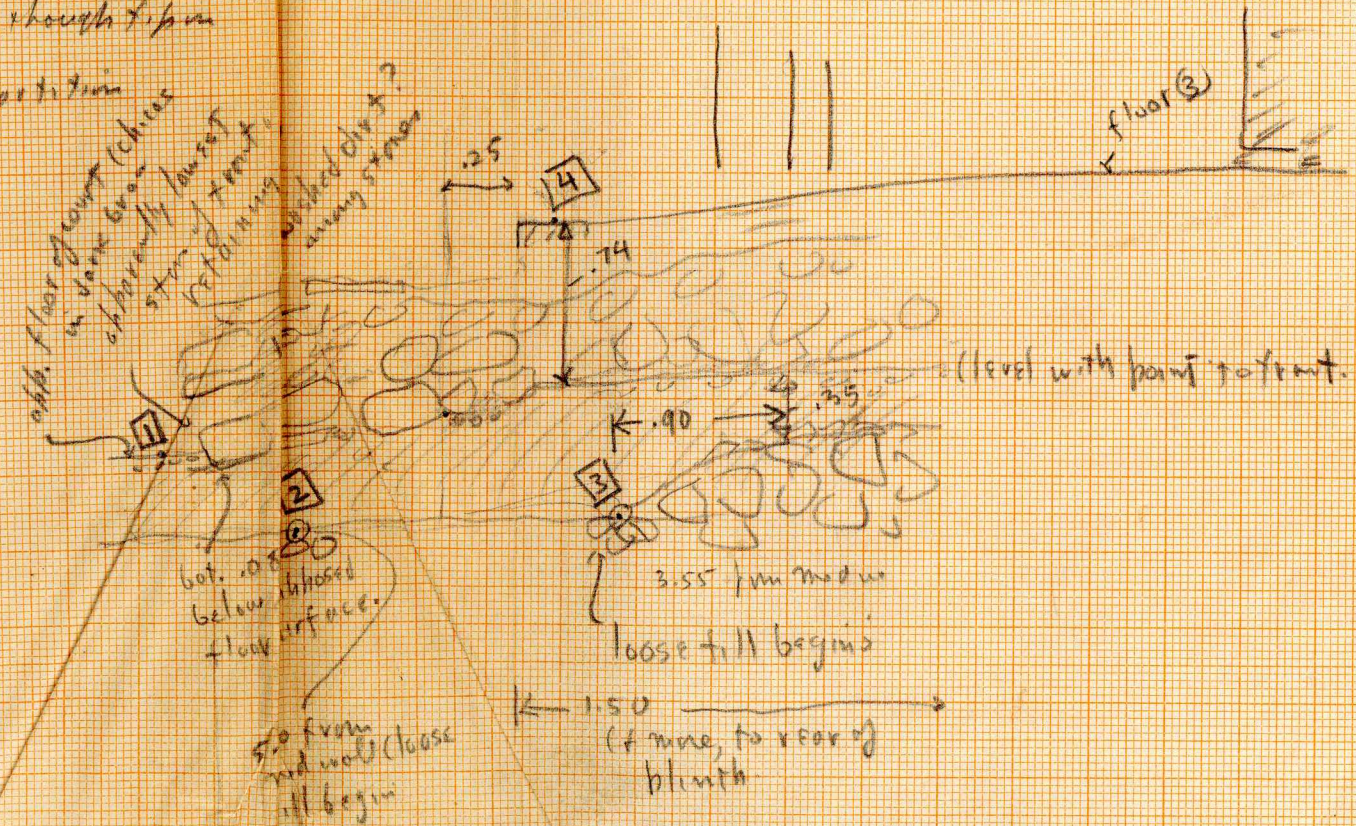 though
app. floor of court (
in
apparently lowest
of front
retaining
washed dirt?
among stones
.25
4
floor ③
.74
(level with point to front.
.90
.35
1
2
3
bot. .08
below
floor surface.
3.55 from
loose fill begins
1.50
(& more, to rear of
plinth
5.0 from
wall (loose
fill begin